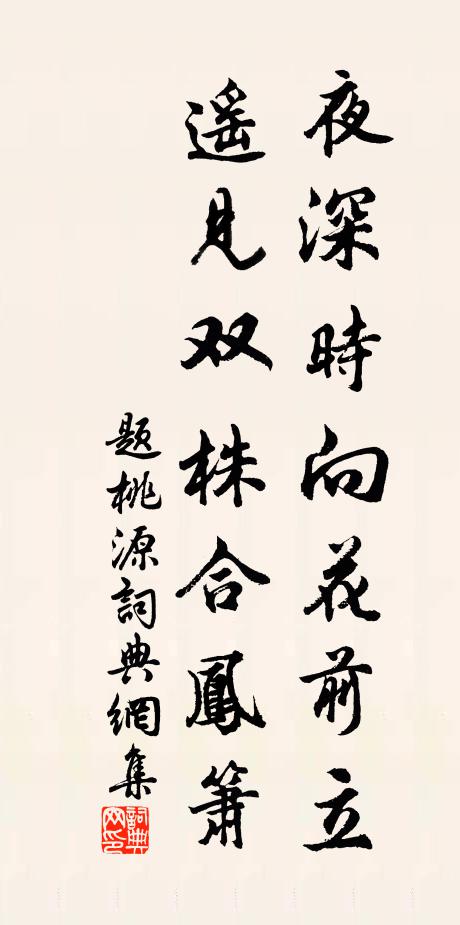 夜深時向花前立
遥見双株合鳳簫
題桃源詞典網集
詞典网印